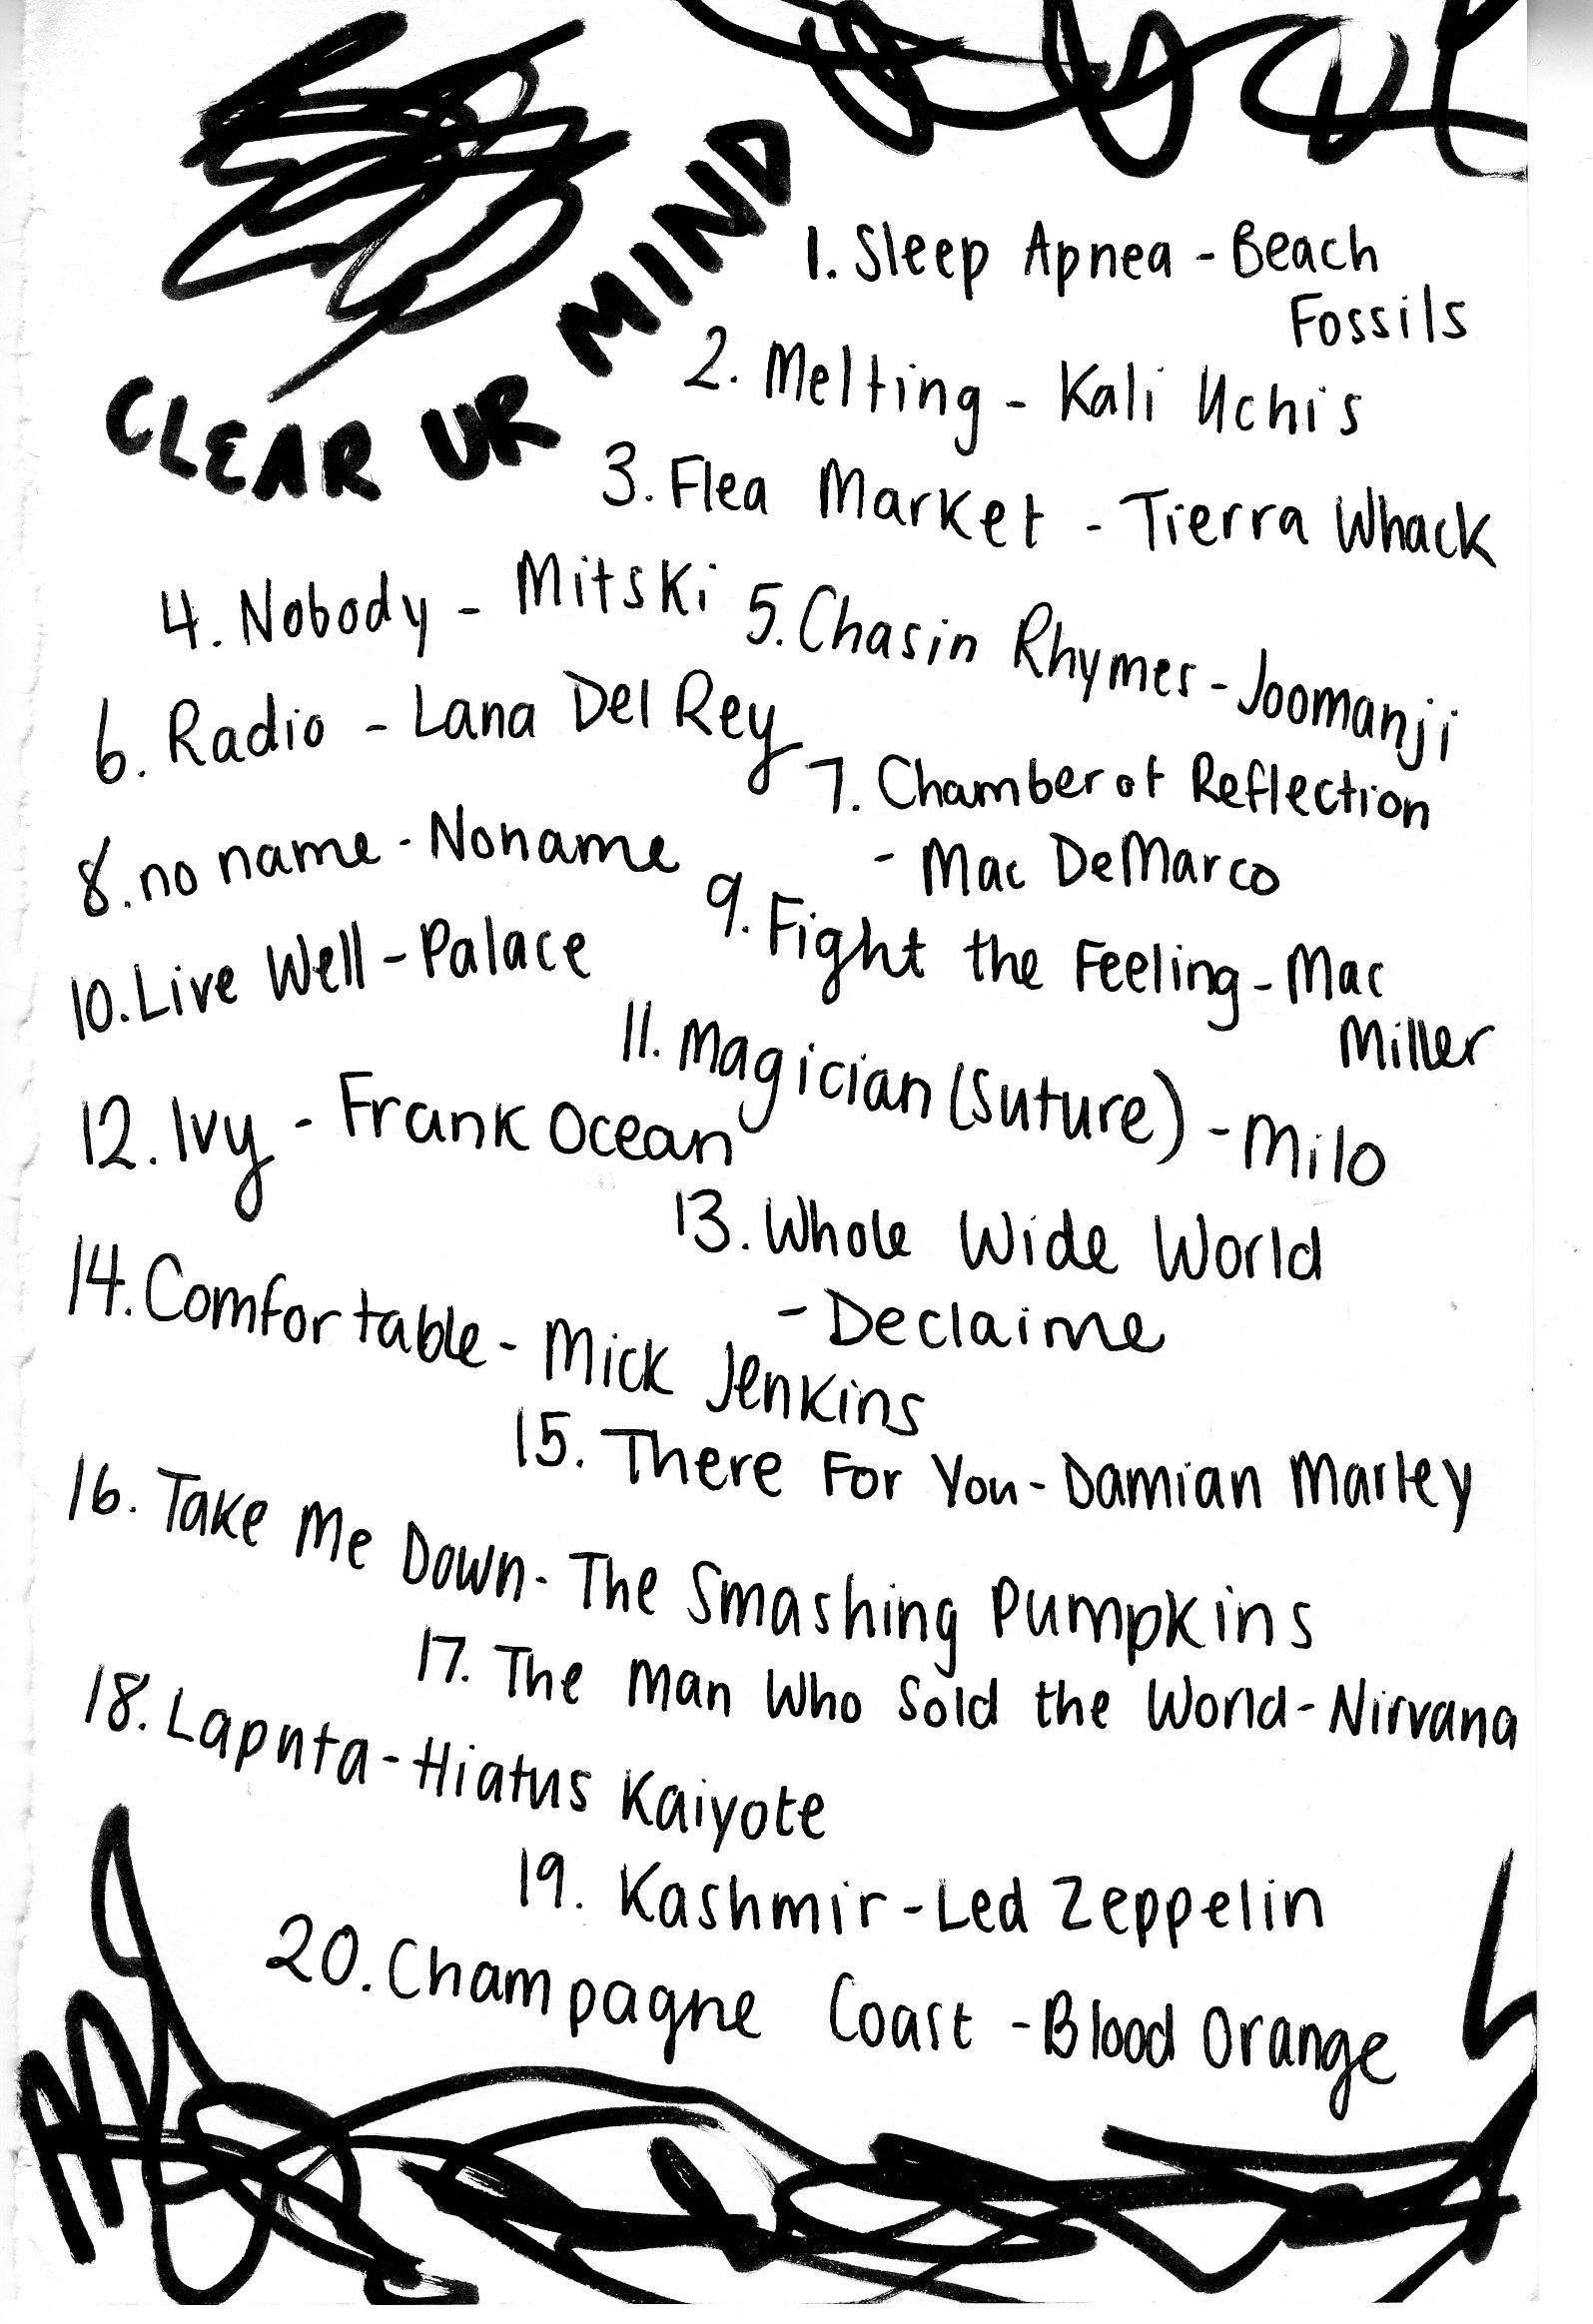 CLEAR UR MIND
1. Sleep Apnea - Beach
Fossils
2. Melting - Kali Uchis
3. Flea Market - Tierra Whack
4. Nobody - Mitski
5. Chasin Rhymes - Joomanji
6. Radio - Lana Del Rey
7. Chamber of Reflection
- Mac DeMarco
8. no name - Noname
9. Fight the Feeling - Mac
Miller
10. Live Well - Palace
11. Magician (Suture) - Milo
12. Ivy - Frank Ocean
13. Whole Wide World
- Declaime
14. Comfortable - Mick Jenkins
15. There For You - Damian Marley
16. Take Me Down - The Smashing Pumpkins
17. The Man Who Sold the World - Nirvana
18. Laputa - Hiatus Kaiyote
19. Kashmir - Led Zeppelin
20. Champagne Coast - Blood Orange